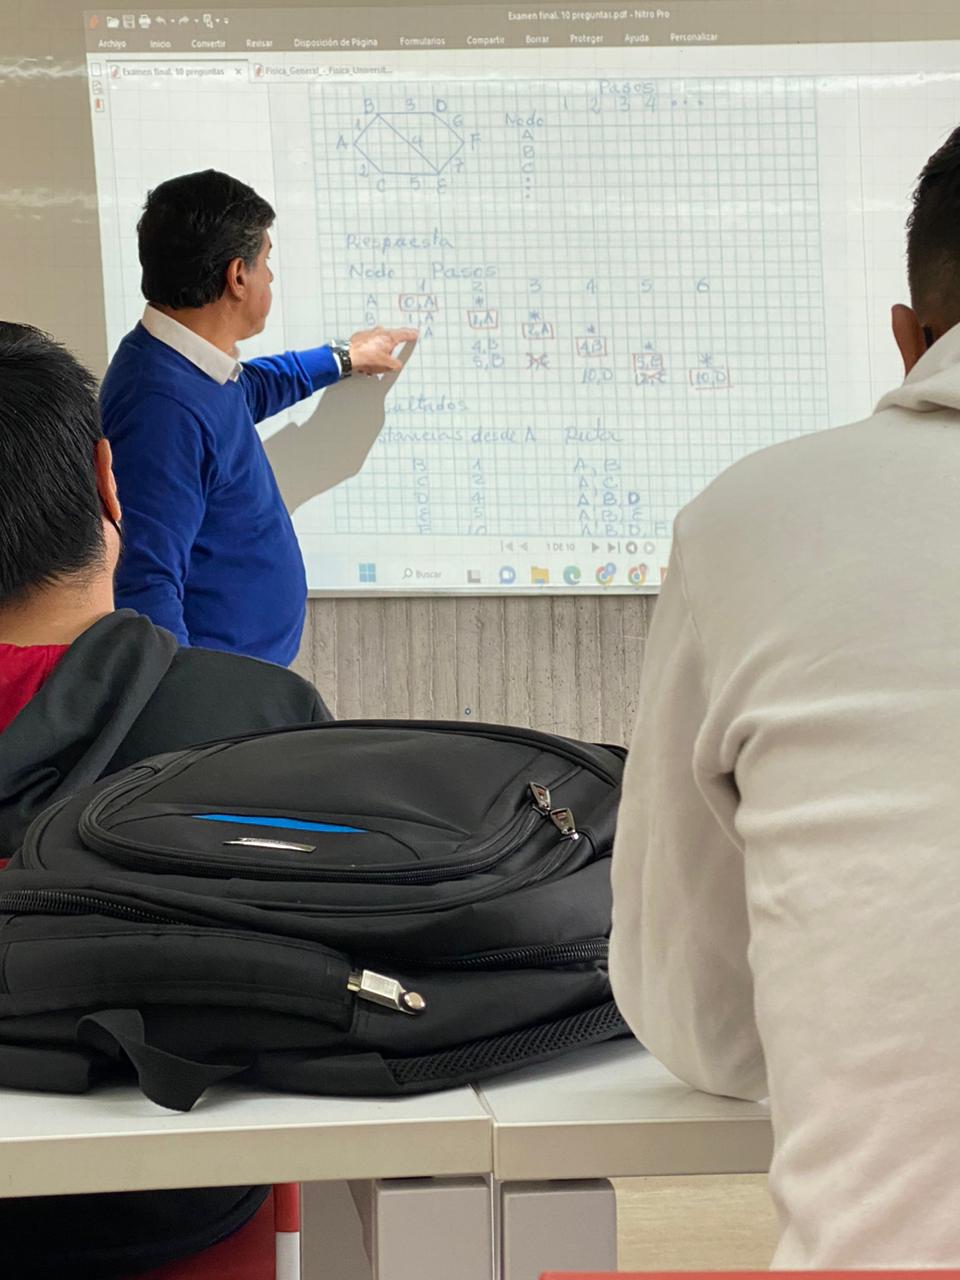 Examen final. 10 preguntas.pdf - Nitro Pro
Archivo Inicio Convertir Revisar Disposición de Página Formularios Compartir Borrar Proteger Ayuda Personalizar
Examen final. 10 preguntas × Fisica_General_-_Fisica_Universit...
Pasos
B 3 D 1 2 3 4 ...
1 6 Nodo
A 4 F A
B
2 7 C
C 5 E
Respuesta
Nodo Pasos
1 2 3 4 5 6
A 0,A *
B 1,A 1,A *
A 2,A *
4,B 4,B *
5,B 5,B *
10,D 10,D
Distancias desde A Ruta
B 1 A, B
C 2 A, C
D 4 A, B, D
E 5 A, B, E
F 10 A, B, D, F
1 DE 10
Buscar